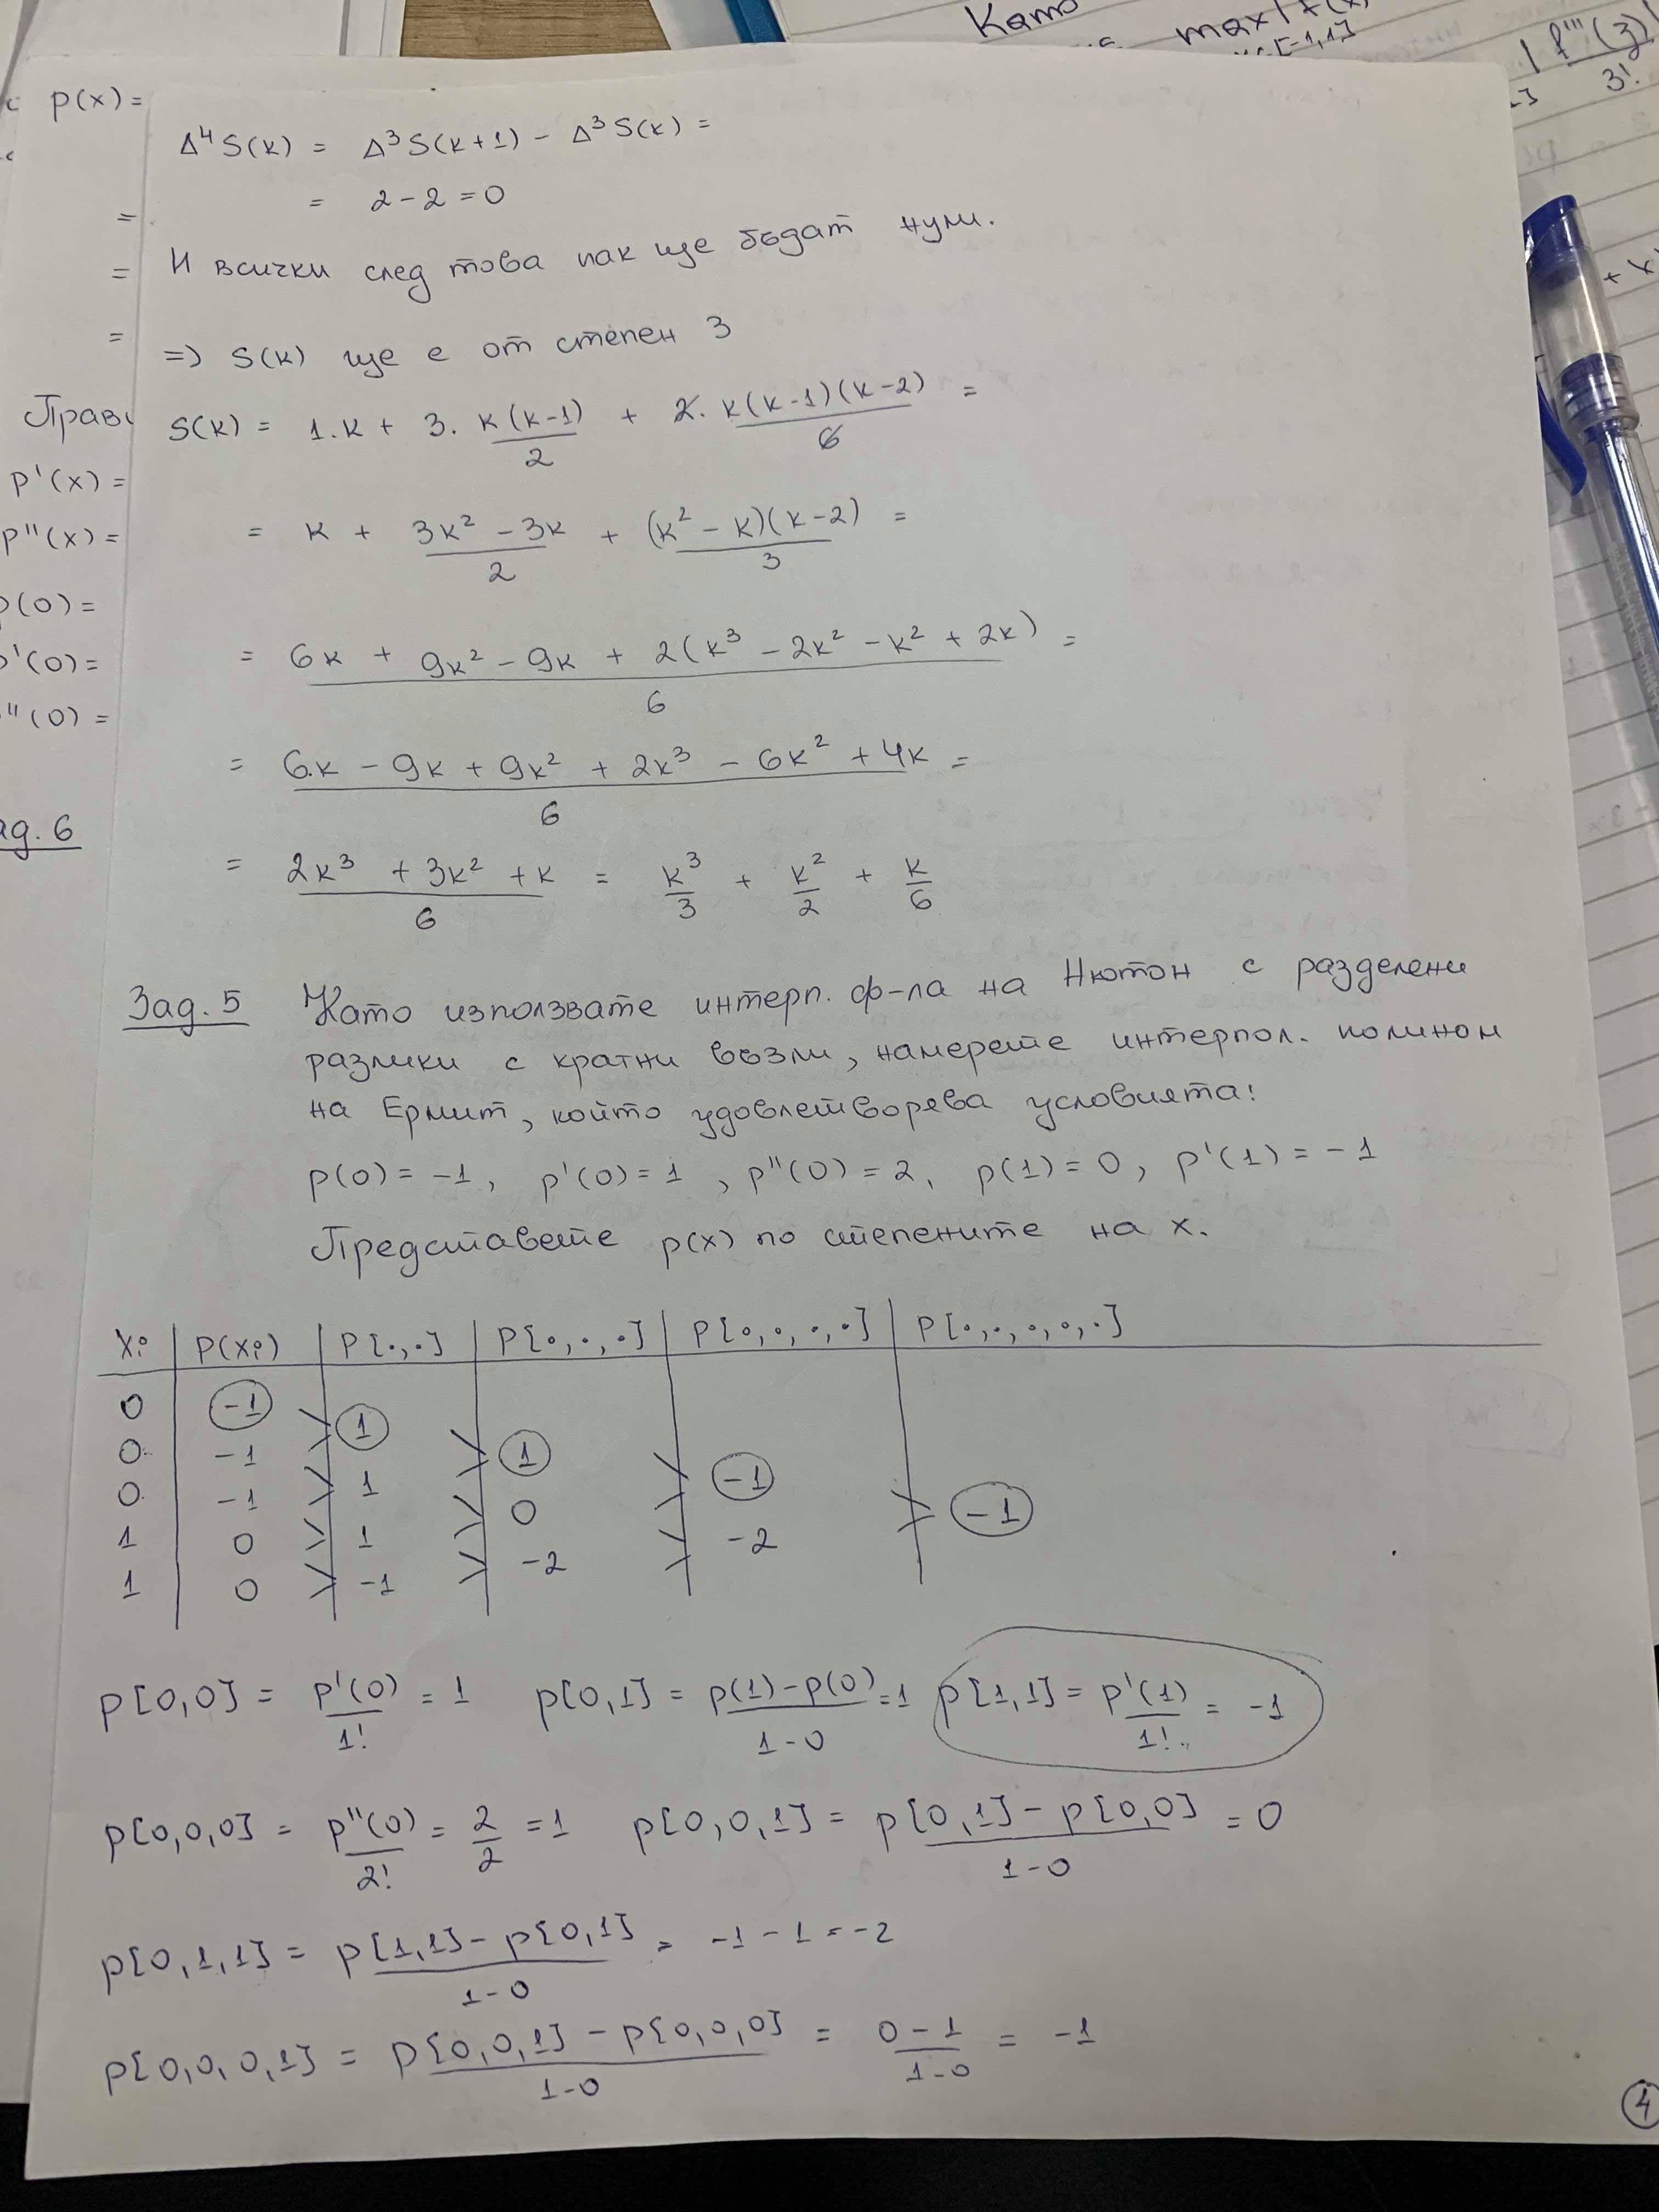 Като
max|f(x)
x∈[-1,1]
|f'''(ξ)|
3!
p(x) =
=
=
=
Прав
p'(x) =
p''(x) =
p(0) =
p'(0) =
''(0) =
ад. 6
Δ⁴S(k) = Δ³S(k+1) - Δ³S(k) =
= 2 - 2 = 0
И всички след това пак ще бъдат нули.
=> S(k) ще е от степен 3
S(k) = 1.k + 3. k(k-1)/2 + 2. k(k-1)(k-2)/6 =
= k + (3k² - 3k)/2 + (k² - k)(k-2)/3 =
= (6k + 9k² - 9k + 2(k³ - 2k² - k² + 2k))/6 =
= (6k - 9k + 9k² + 2k³ - 6k² + 4k)/6 =
= (2k³ + 3k² + k)/6 = k³/3 + k²/2 + k/6
Зад. 5 Като използвате интерп. ф-ла на Нютон с разделени
разлики с кратни възли, намерете интерпол. полином
на Ермит, който удовлетворява условията:
p(0) = -1, p'(0) = 1, p''(0) = 2, p(1) = 0, p'(1) = -1
Представете p(x) по степените на x.
xi | P(xi) | P[.,.] | P[.,.,.] | P[.,.,.,.] | P[.,.,.,.,.]
0 -1
1
0 -1 1
1 -1
0 -1 0 -1
1 -2
1 0 -2
-1
1 0
p[0,0] = p'(0)/1! = 1 p[0,1] = (p(1) - p(0))/(1-0) = 1 p[1,1] = p'(1)/1! = -1
p[0,0,0] = p''(0)/2! = 2/2 = 1 p[0,0,1] = (p[0,1] - p[0,0])/(1-0) = 0
p[0,1,1] = (p[1,1] - p[0,1])/(1-0) = -1 - 1 = -2
p[0,0,0,1] = (p[0,0,1] - p[0,0,0])/(1-0) = (0-1)/(1-0) = -1
4